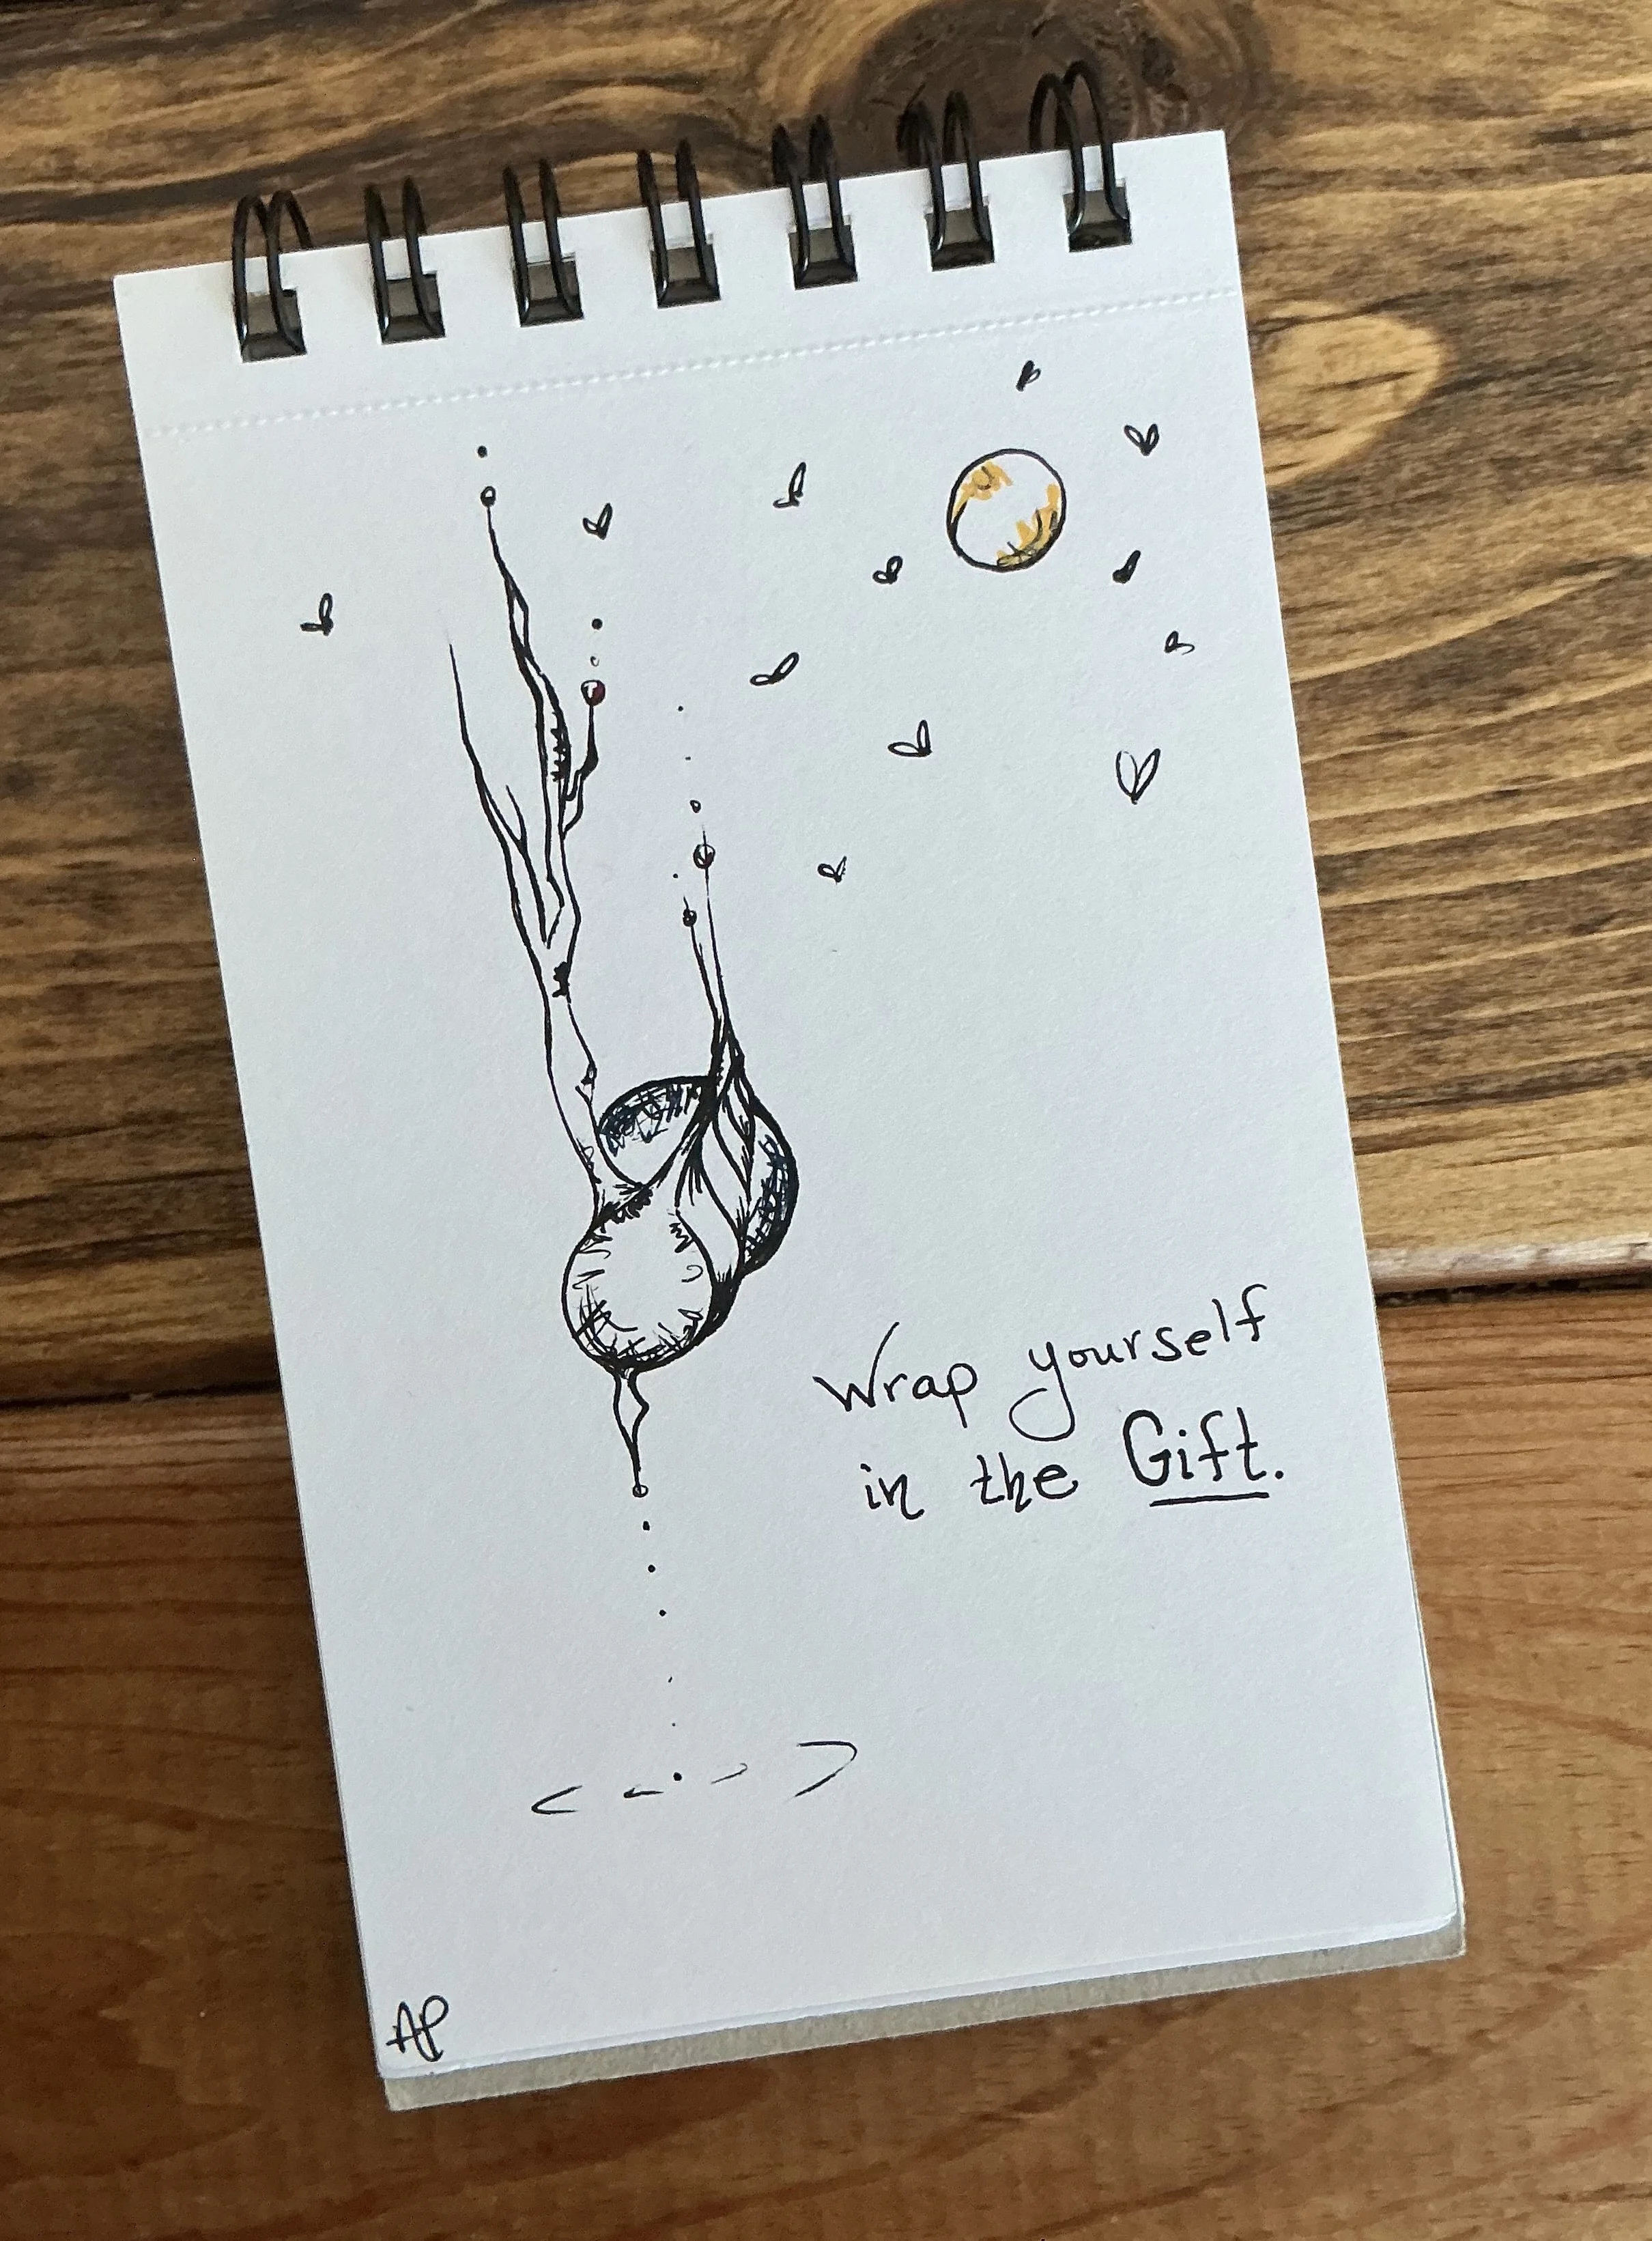 Wrap yourself
in the Gift.
AP